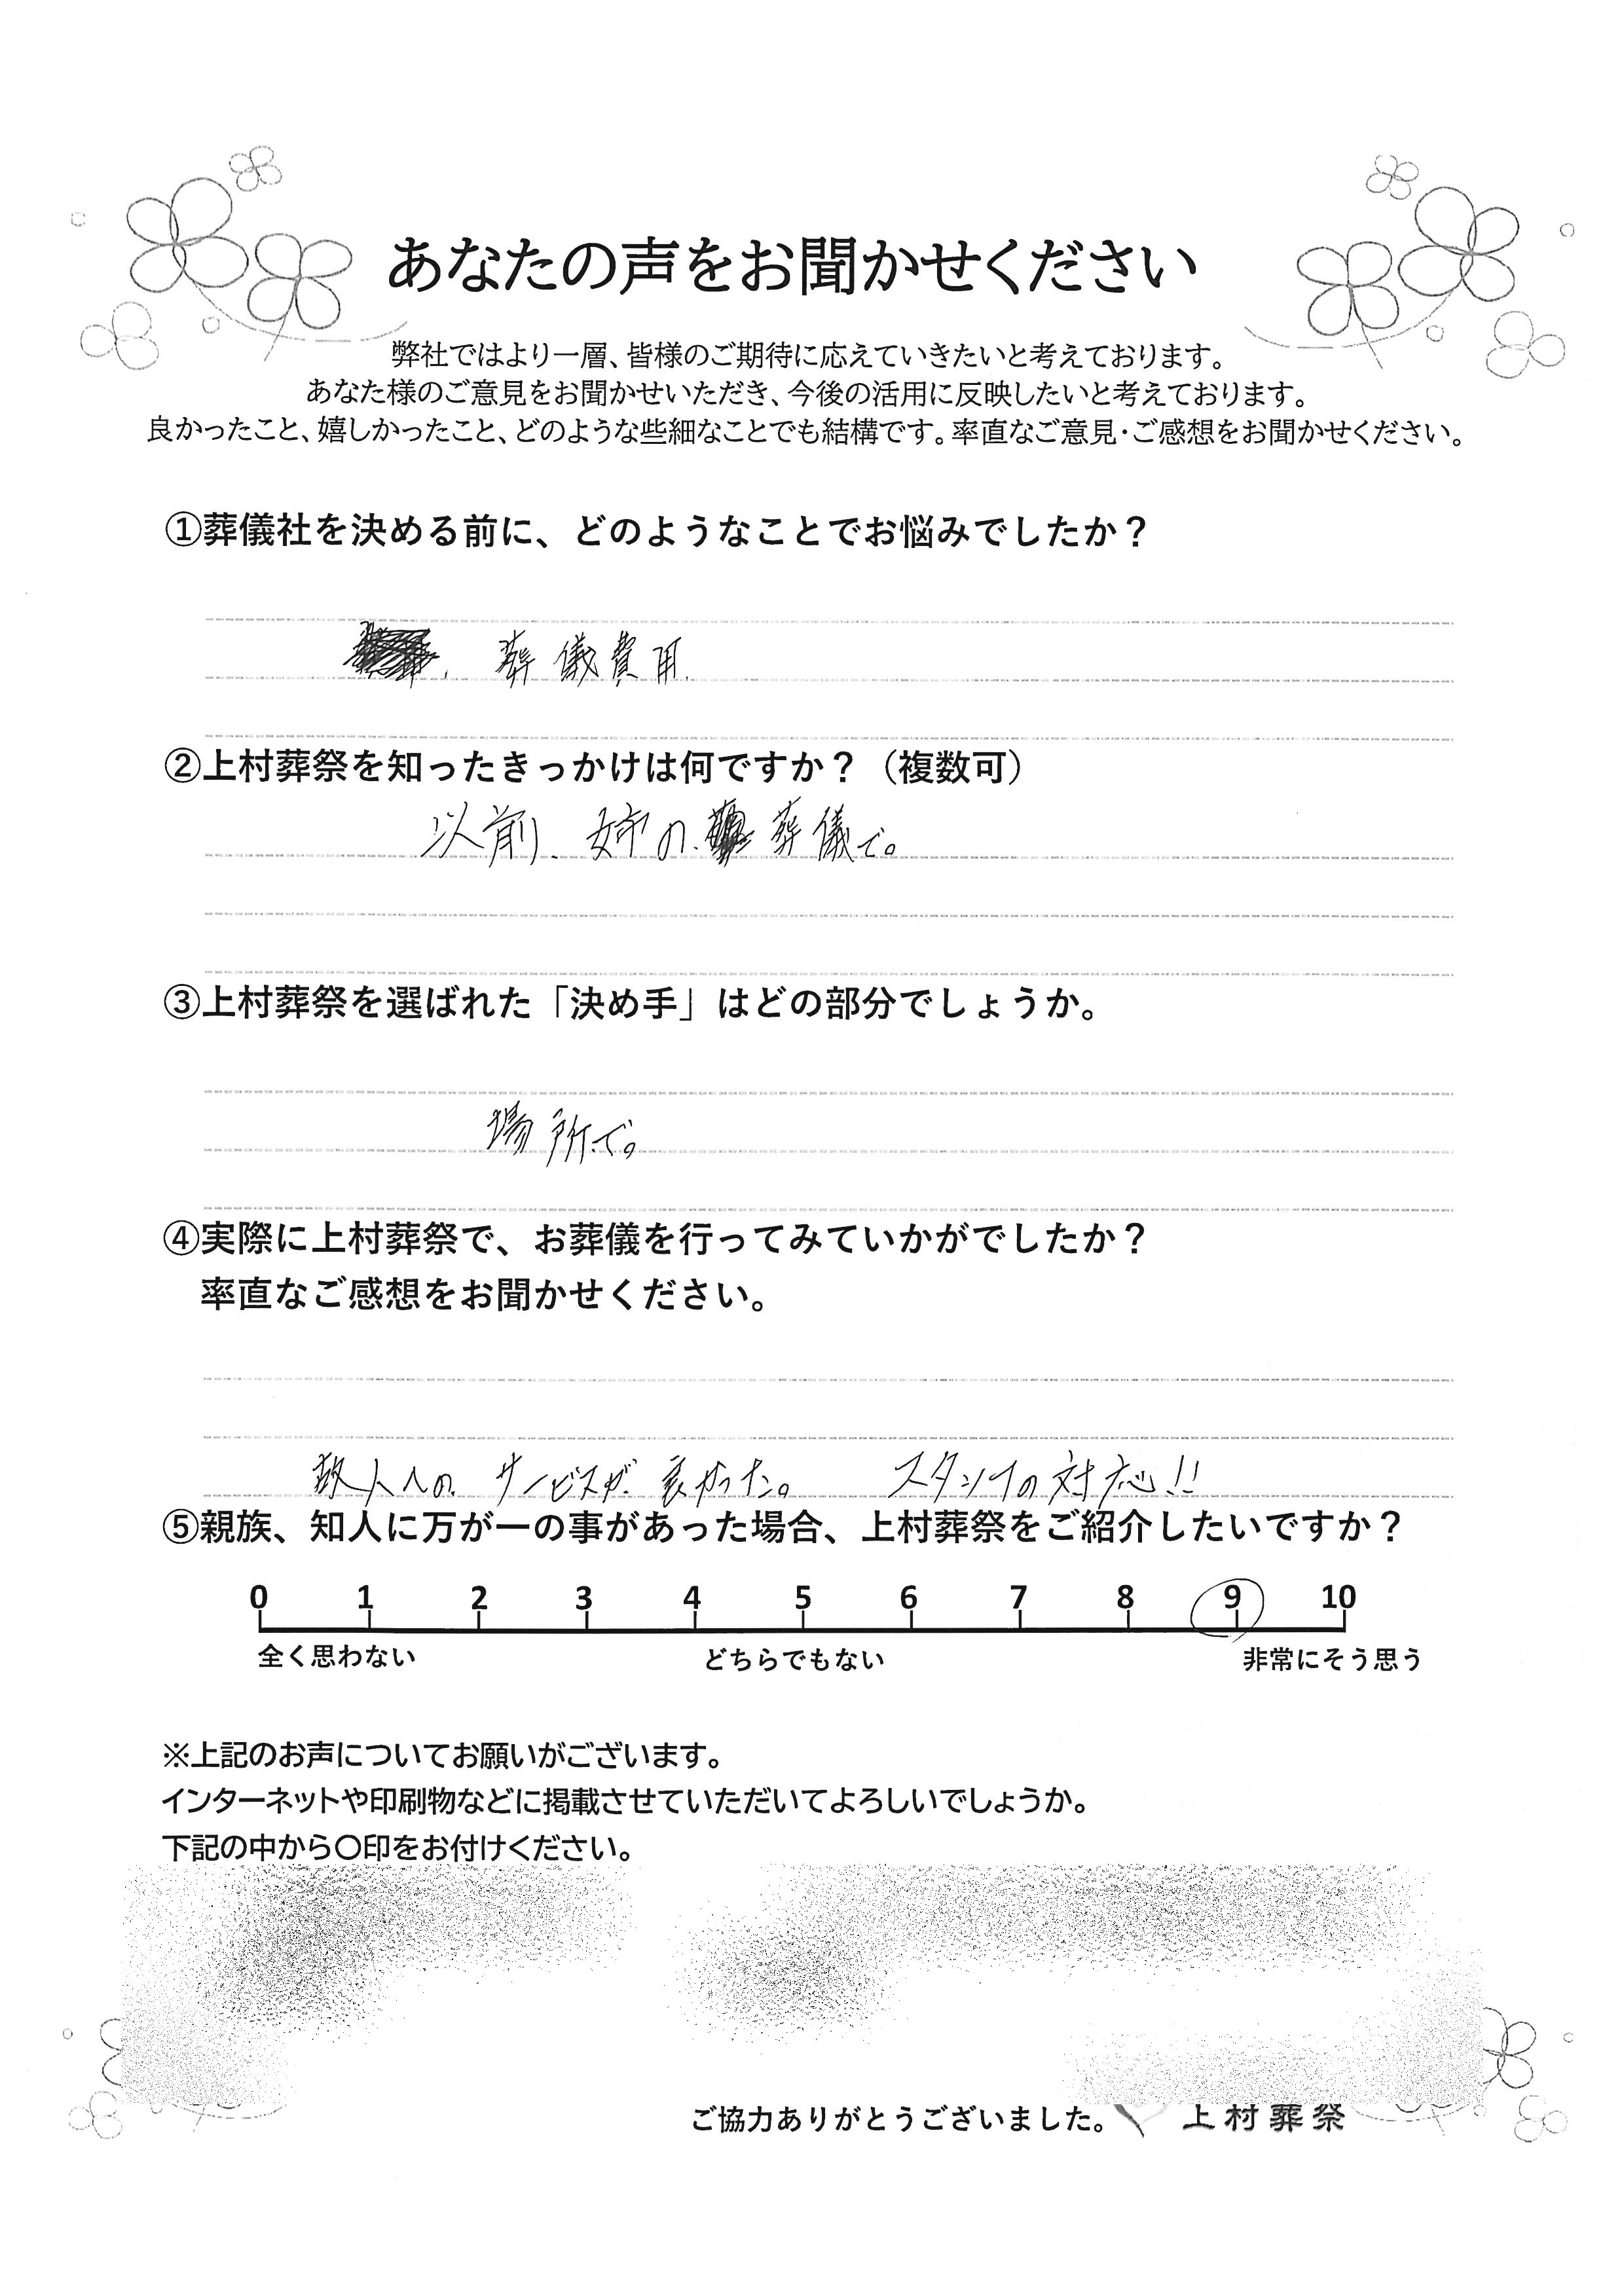 あなたの声をお聞かせください
弊社ではより一層、皆様のご期待に応えていきたいと考えております。
あなた様のご意見をお聞かせいただき、今後の活用に反映したいと考えております。
良かったこと、嬉しかったこと、どのような些細なことでも結構です。率直なご意見・ご感想をお聞かせください。
①葬儀社を決める前に、どのようなことでお悩みでしたか？
葬儀費用.
②上村葬祭を知ったきっかけは何ですか？（複数可）
以前、姉の葬儀で。
③上村葬祭を選ばれた「決め手」はどの部分でしょうか。
場所で。
④実際に上村葬祭で、お葬儀を行ってみていかがでしたか？
率直なご感想をお聞かせください。
故人への、サービスが良かった。 スタッフの対応!!
⑤親族、知人に万が一の事があった場合、上村葬祭をご紹介したいですか？
0 1 2 3 4 5 6 7 8 9 10
全く思わない どちらでもない 非常にそう思う
※上記のお声についてお願いがございます。
インターネットや印刷物などに掲載させていただいてよろしいでしょうか。
下記の中から〇印をお付けください。
ご協力ありがとうございました。 上村葬祭